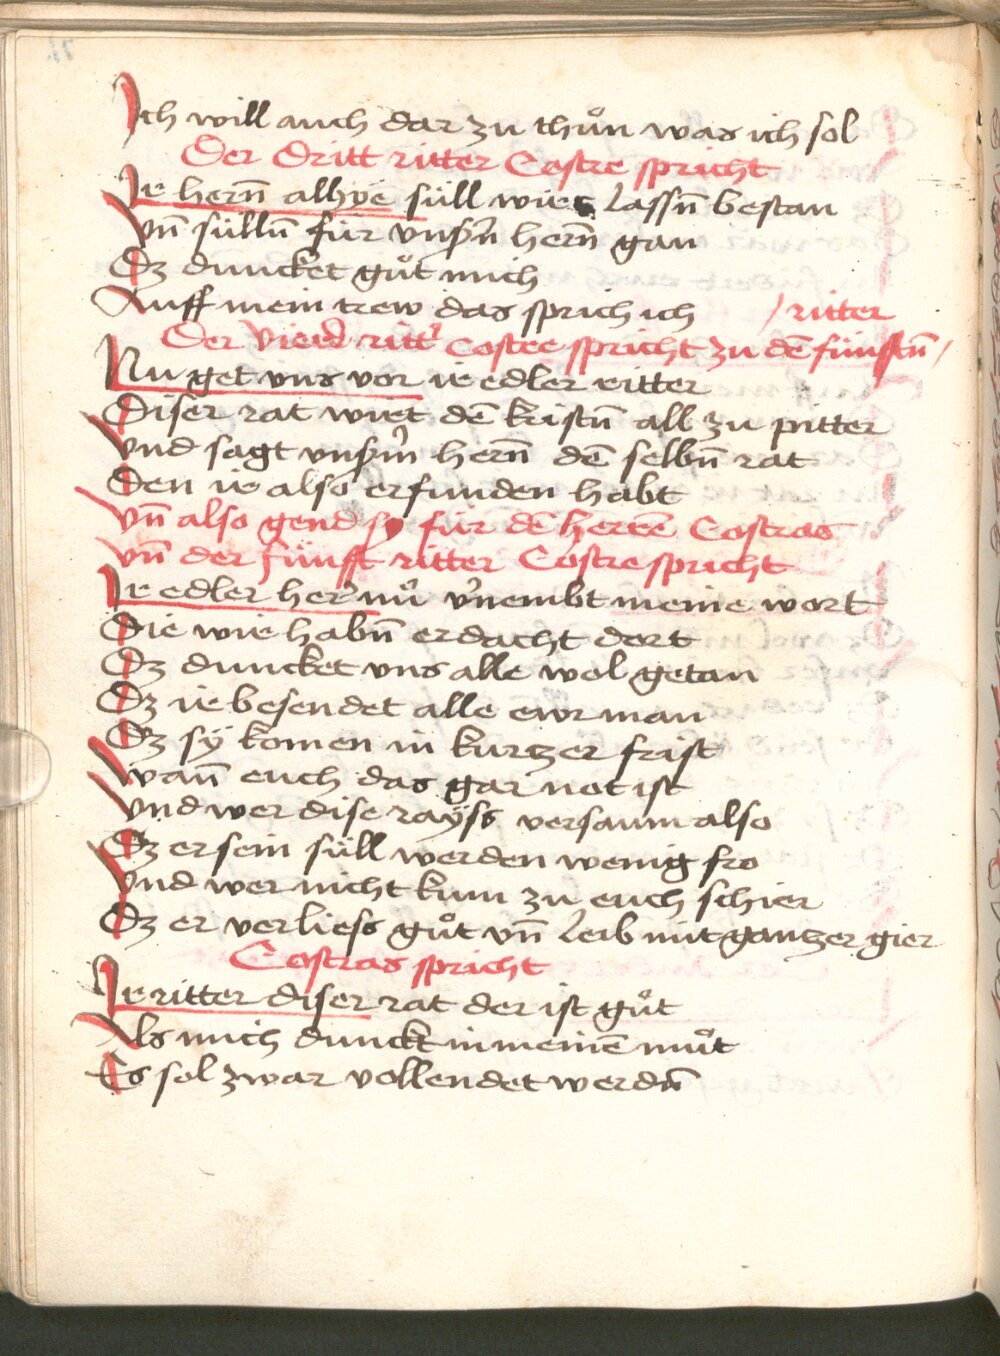 Ich will auch dar zu thuͦn was ich sol
Der dritt ritter Costre spricht
Ir hern̄ alhye süll wir Lassn̄ bestan
Vn̄ sülln̄ für vnsern̄ hern̄ gan
Dz duncket guͦt mich
Auff mein trew das sprich ich / ritter
Der vierd ritter Costre spricht zu dē fünfftn̄ /
Nu get vns vor ir edler ritter
Diser rat wirt dē kristn̄ all zu pitter
Vnd sagt vnserm hern̄ dē selbn̄ rat
Den ir also erfunden habt
Vn̄ also gend sy für dē herrē Costras
Vn̄ der fünfft ritter Costre spricht
Ir edler her nuͦ vernembt meine wort
Die wir habn̄ erdacht dort
Dz duncket vns alle wol getan
Dz ir besendet alle ewr man
Dz sÿ komen in kurtzer frist
Wann̄ euch das gar not ist
Vnd wer dise raÿss versaum also
Dz er sein süll werden wenig fro
Vnd wer nicht kum zu euch schier
Dz er verliess guͦt vn̄ Leib mit gantzer gier
Costras spricht
Ir ritter diser rat der ist guͦt
Als mich dunckt in meinē muͦt
Es sol zwar vollendet werdn̄